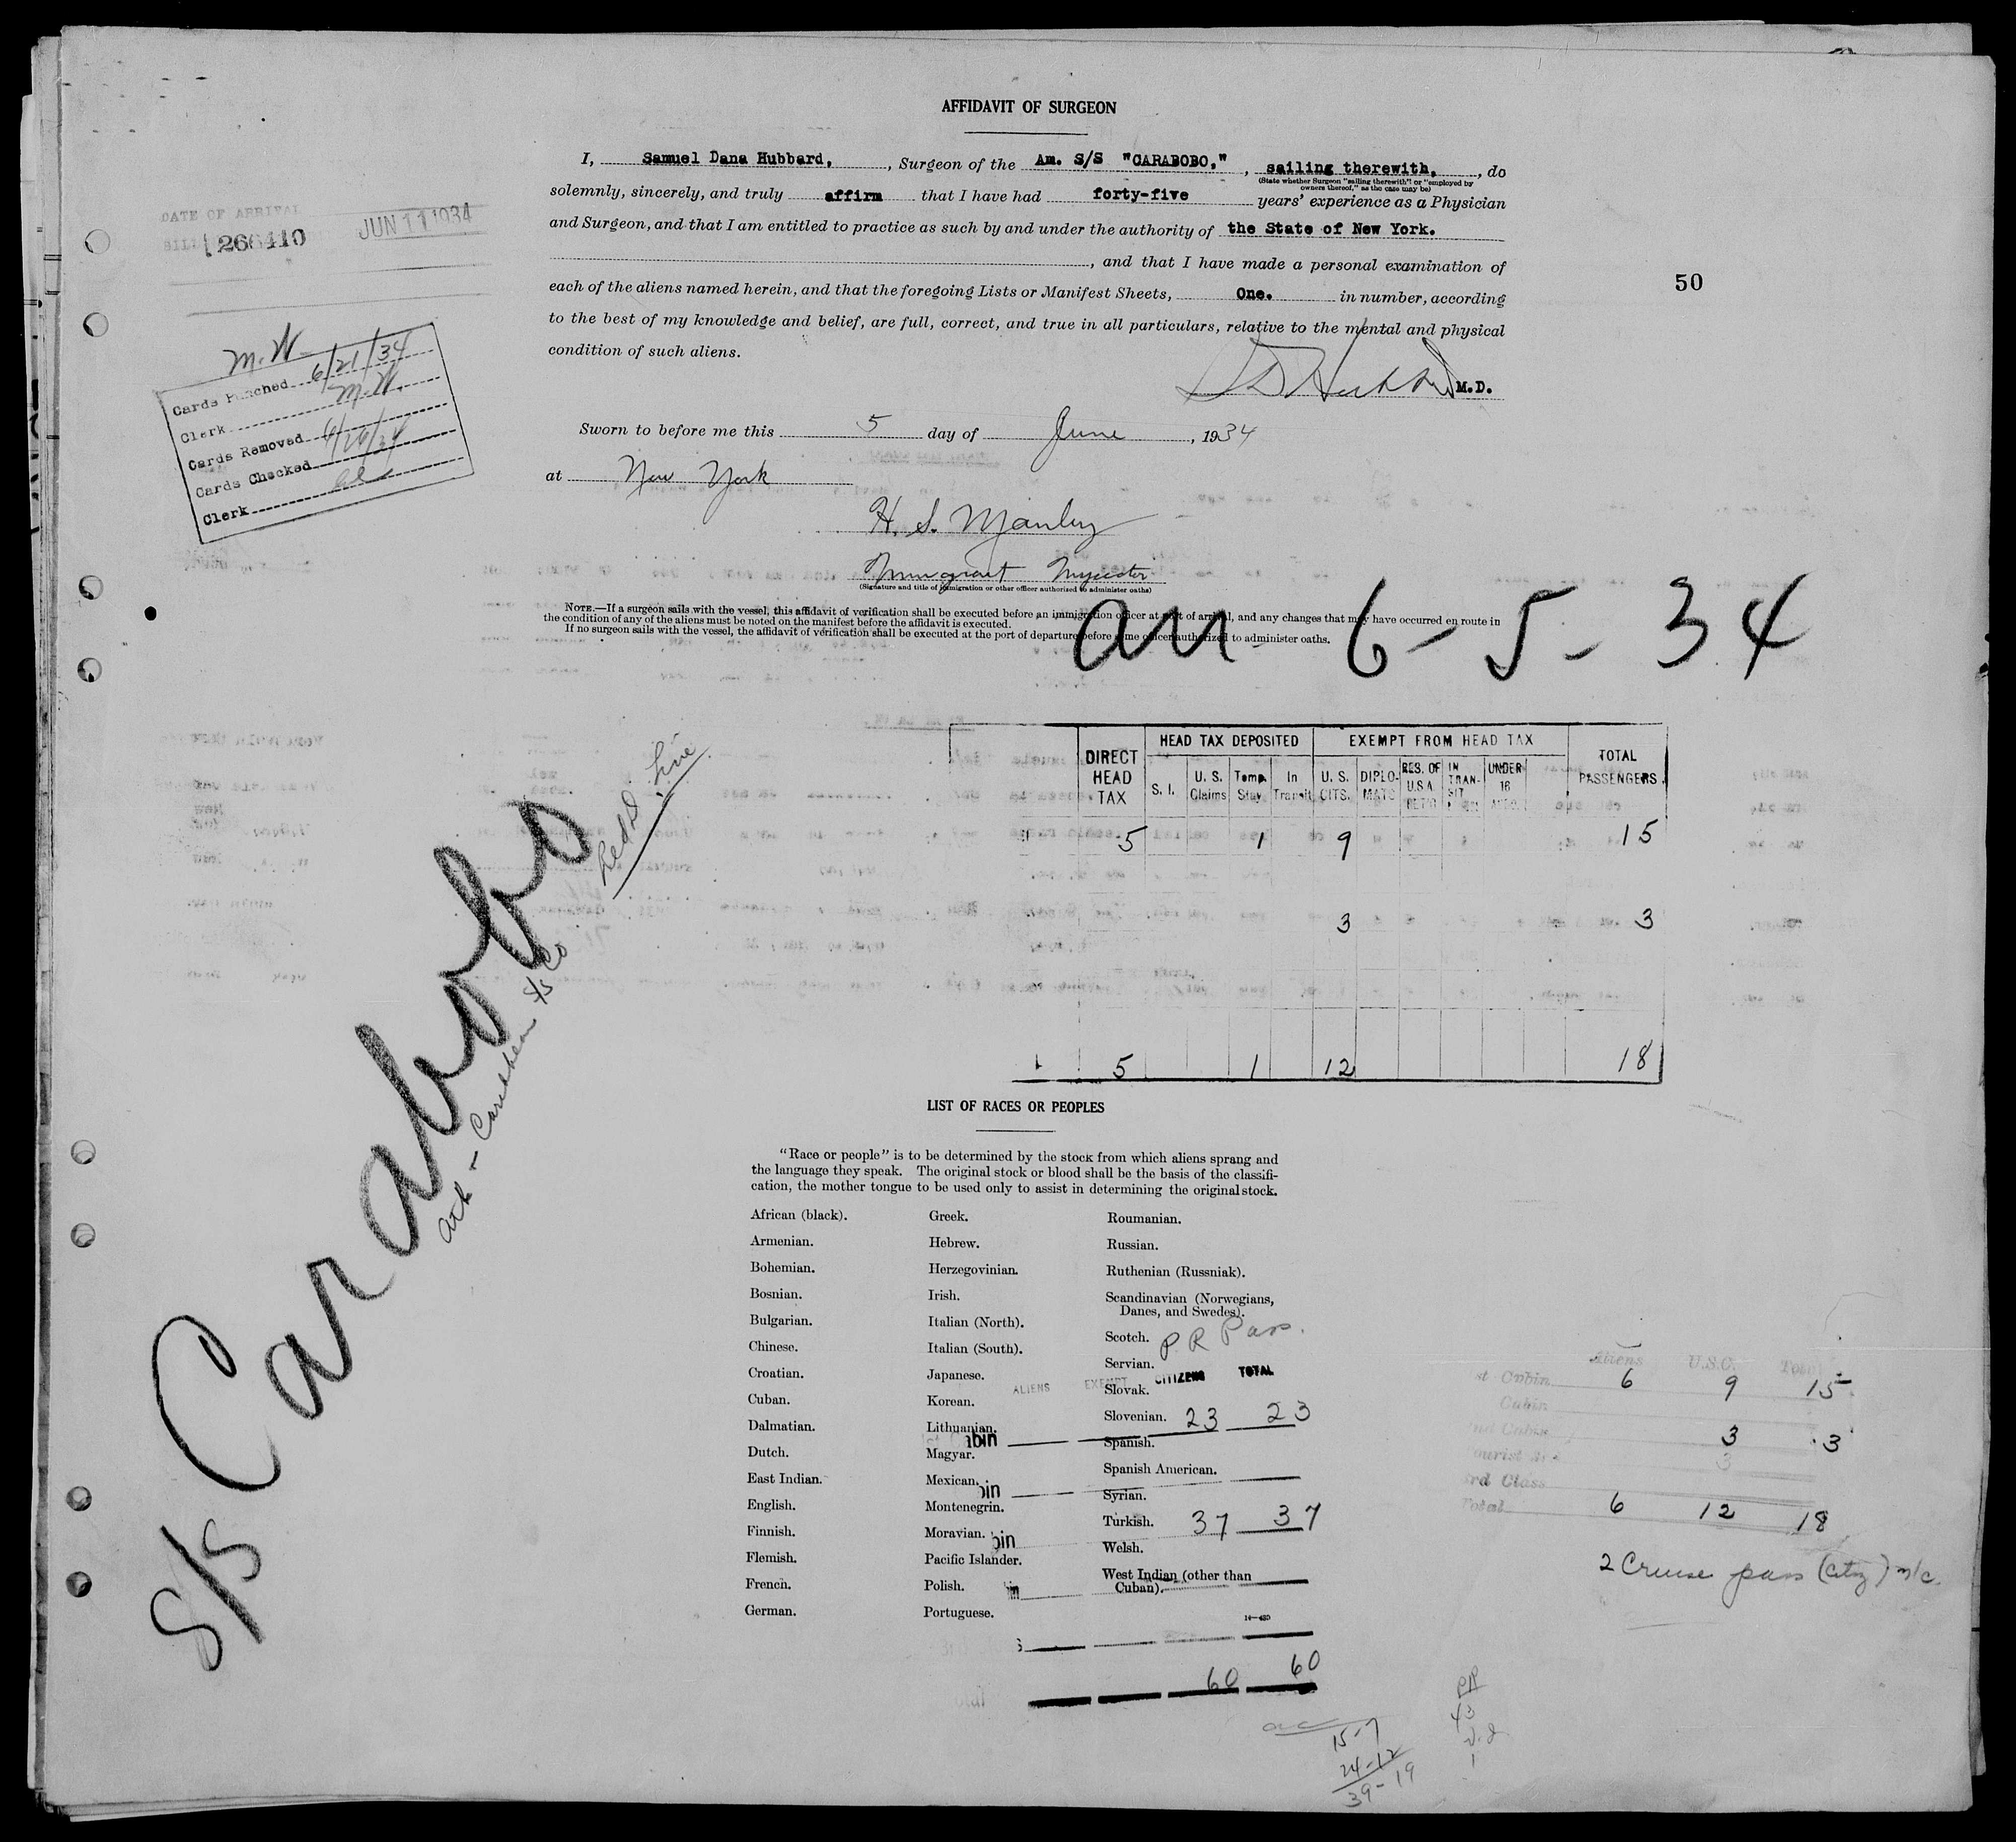 AFFIDAVIT OF SURGEON
I, Samuel Dana Hubbard, , Surgeon of the Am. S/S "CARABOBO," , sailing therewith, , do
(State whether Surgeon "sailing therewith" or "employed by
owners thereof," as the case may be)
solemnly, sincerely, and truly affirm that I have had forty-five years' experience as a Physician
and Surgeon, and that I am entitled to practice as such by and under the authority of the State of New York.
, and that I have made a personal examination of
each of the aliens named herein, and that the foregoing Lists or Manifest Sheets, One. in number, according
to the best of my knowledge and belief, are full, correct, and true in all particulars, relative to the mental and physical
condition of such aliens.
S D Hubbard M.D.
Sworn to before me this 5 day of June , 1934
at New York
H. S. Manley
Immigrant Inspector
(Signature and title of immigration or other officer authorized to administer oaths)
NOTE.—If a surgeon sails with the vessel, this affidavit of verification shall be executed before an immigration officer at port of arrival, and any changes that may have occurred en route in
the condition of any of the aliens must be noted on the manifest before the affidavit is executed.
If no surgeon sails with the vessel, the affidavit of verification shall be executed at the port of departure before some officer authorized to administer oaths.
DATE OF ARRIVAL
266410
JUN 11 1934
50
M. W.
Cards Punched 6/21/34
Clerk M. W.
Cards Removed 6/26/34
Cards Checked
Clerk
arr 6-5-34
S/S Carabobo
Atl & Caribbean S/S Co
Red D Line
DIRECT HEAD TAX
HEAD TAX DEPOSITED
EXEMPT FROM HEAD TAX
TOTAL PASSENGERS
S. I. U. S. Claims Temp. Stay In Transit U. S. CITS. DIPLOMATS RES. OF U.S.A. RET'G IN TRANSIT UNDER 16
5 1 9 15
3 3
5 1 12 18
LIST OF RACES OR PEOPLES
"Race or people" is to be determined by the stock from which aliens sprang and
the language they speak. The original stock or blood shall be the basis of the classifi-
cation, the mother tongue to be used only to assist in determining the original stock.
African (black).
Armenian.
Bohemian.
Bosnian.
Bulgarian.
Chinese.
Croatian.
Cuban.
Dalmatian.
Dutch.
East Indian.
English.
Finnish.
Flemish.
French.
German.
Greek.
Hebrew.
Herzegovinian.
Irish.
Italian (North).
Italian (South).
Japanese.
Korean.
Lithuanian.
Magyar.
Mexican.
Montenegrin.
Moravian.
Pacific Islander.
Polish.
Portuguese.
Roumanian.
Russian.
Ruthenian (Russniak).
Scandinavian (Norwegians,
Danes, and Swedes).
Scotch.
Servian.
Slovak.
Slovenian.
Spanish.
Spanish American.
Syrian.
Turkish.
Welsh.
West Indian (other than
Cuban).
14-430
P. R Pass.
ALIENS EXEMPT CITIZENS TOTAL
23 23
37 37
60 60
Aliens U.S.C. Total
st Cabin 6 9 15
Cabin
nd Cabin 3 3
3
rd Class
Total 6 12 18
2 Cruise pass (City) n/c.
15-7
24-12
39-19
PR
43
V.I.
1